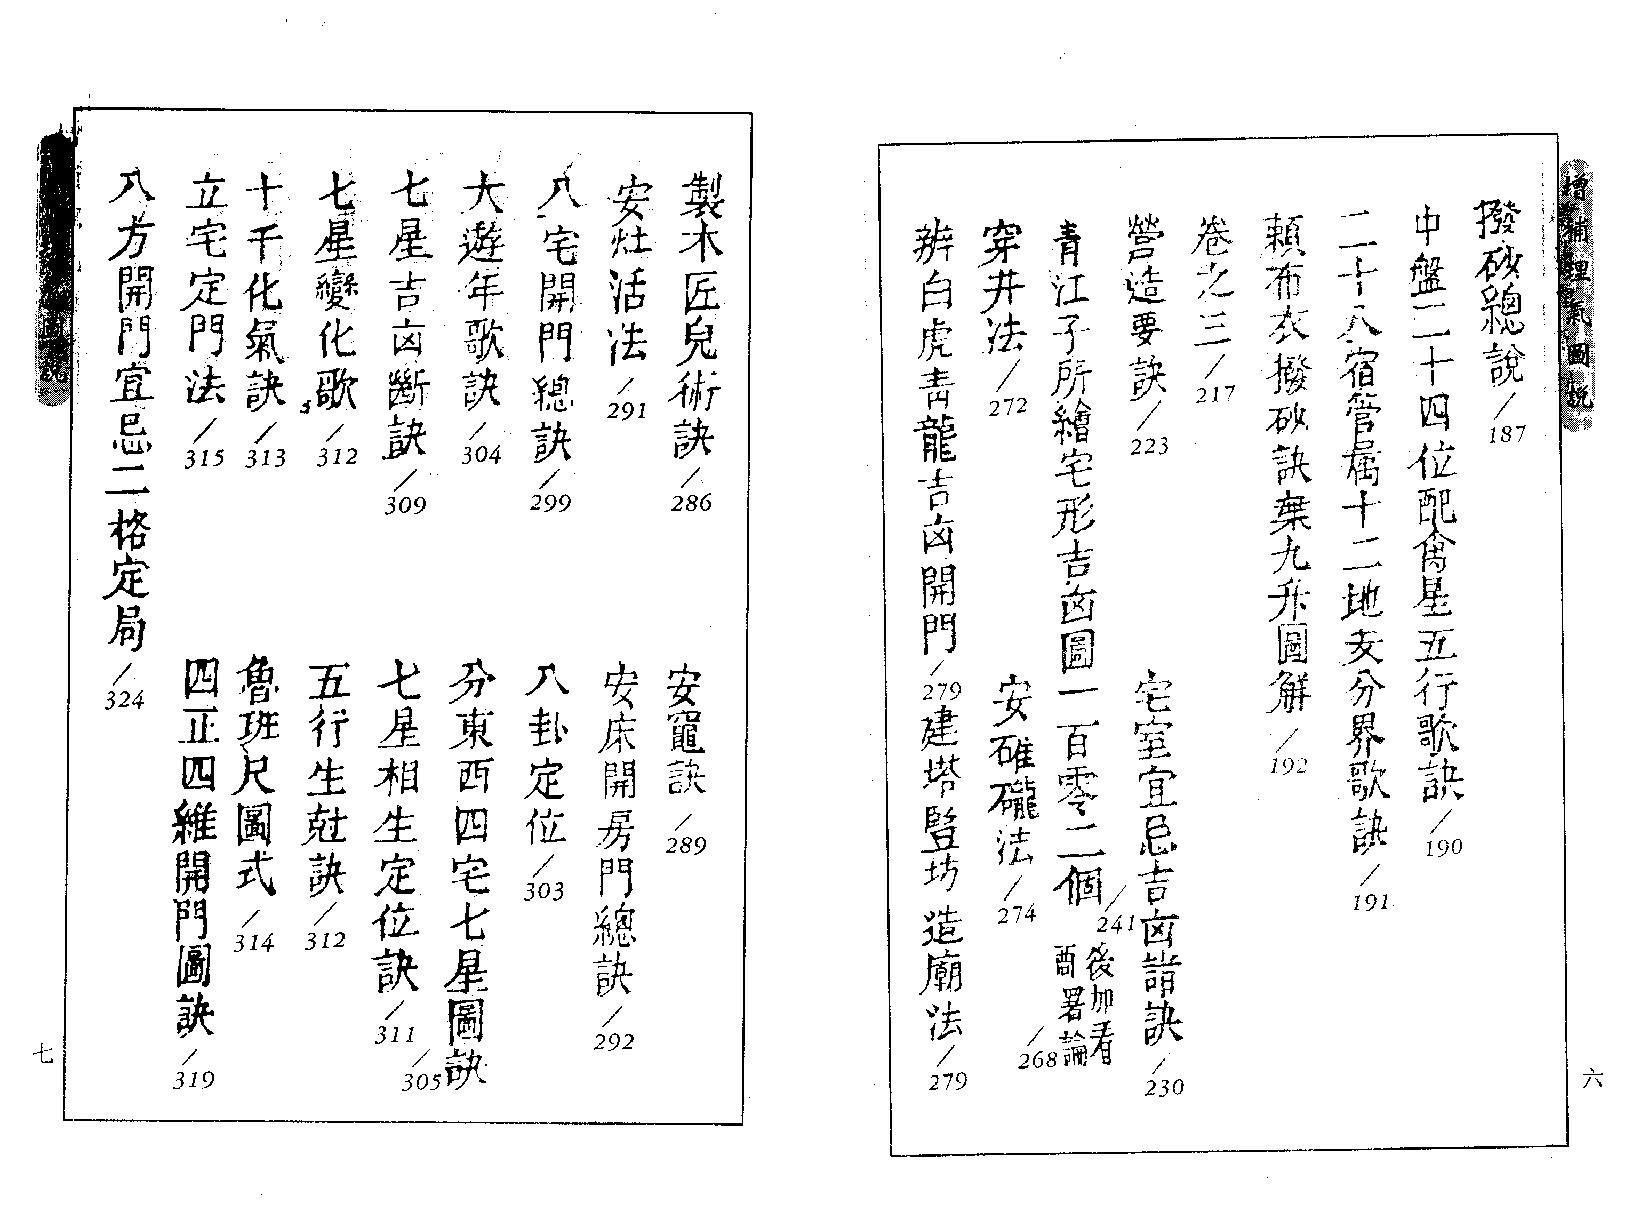 增補理氣圖説
撥砂總說/187
中盤二十四位配禽星五行歌訣/190
二十八宿管属十二地支分界歌訣/191
賴布衣撥砂訣棄九升圖解/192
卷之三/217
營造要訣/223
宅室宜忌吉凶諧訣/230
青江子所繪宅形吉凶圖一百零二個/241
後加看
署論/268
穿井法/272
安碓礲法/274
辨白虎青龍吉凶開門/279
建塔豎坊造廟法/279
六
製木匠兒術訣/286
安竈訣/289
安灶活法/291
安床開房門總訣/292
八宅開門總訣/299
八卦定位/303
大遊年歌訣/304
分東西四宅七星圖訣/305
七星吉凶斷訣/309
七星相生定位訣/311
七星變化歌/312
五行生尅訣/312
十干化氣訣/313
魯班尺圖式/314
立宅定門法/315
四正四維開門圖訣/319
八方開門宜忌二格定局/324
圖説
七